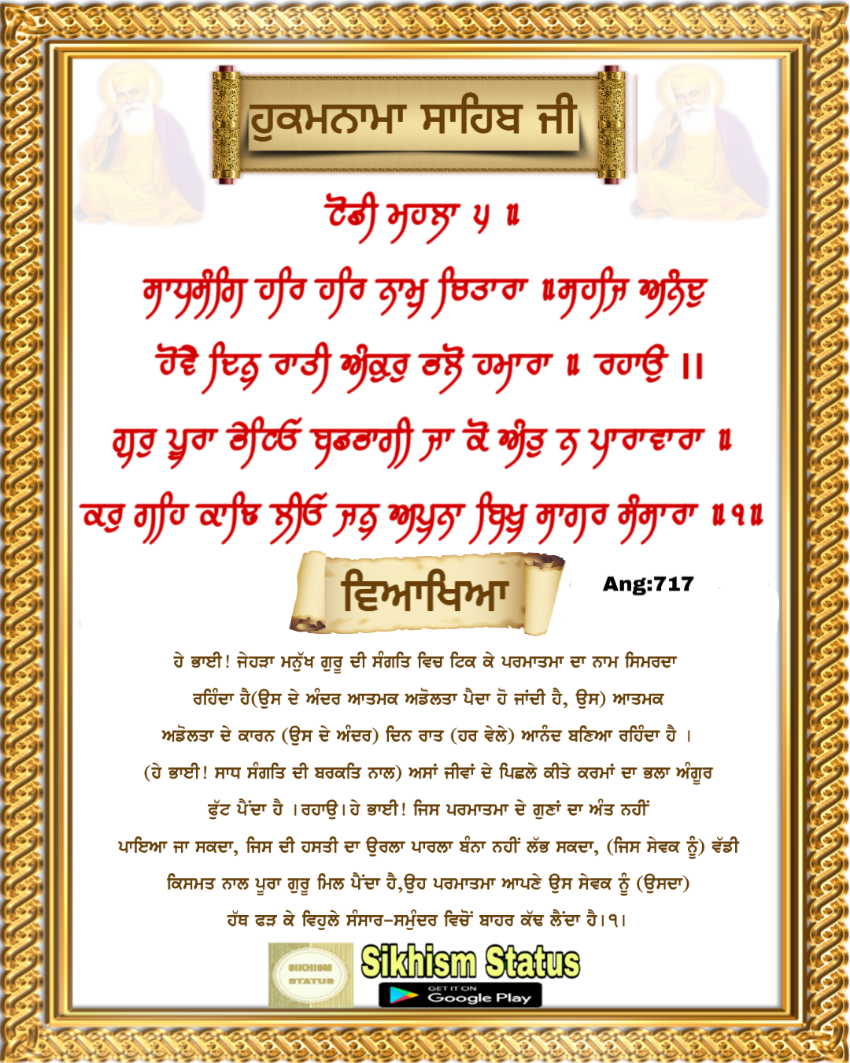 ਹੁਕਮਨਾਮਾ ਸਾਹਿਬ ਜੀ
ਟੋਡੀ ਮਹਲਾ ੫ ॥
ਸਾਧਸੰਗਿ ਹਰਿ ਹਰਿ ਨਾਮੁ ਚਿਤਾਰਾ ॥ਸਹਜਿ ਅਨੰਦੁ
ਹੋਵੈ ਦਿਨੁ ਰਾਤੀ ਅੰਕੁਰੁ ਭਲੋ ਹਮਾਰਾ ॥ ਰਹਾਉ ।।
ਗੁਰੁ ਪੂਰਾ ਭੇਟਿਓ ਬਡਭਾਗੀ ਜਾ ਕੋ ਅੰਤੁ ਨ ਪਾਰਾਵਾਰਾ ॥
ਕਰੁ ਗਹਿ ਕਾਢਿ ਲੀਓ ਜਨੁ ਅਪੁਨਾ ਬਿਖੁ ਸਾਗਰ ਸੰਸਾਰਾ ॥੧॥
ਵਿਆਖਿਆ
Ang:717
ਹੇ ਭਾਈ! ਜੇਹੜਾ ਮਨੁੱਖ ਗੁਰੂ ਦੀ ਸੰਗਤਿ ਵਿਚ ਟਿਕ ਕੇ ਪਰਮਾਤਮਾ ਦਾ ਨਾਮ ਸਿਮਰਦਾ
ਰਹਿੰਦਾ ਹੈ(ਉਸ ਦੇ ਅੰਦਰ ਆਤਮਕ ਅਡੋਲਤਾ ਪੈਦਾ ਹੋ ਜਾਂਦੀ ਹੈ, ਉਸ) ਆਤਮਕ
ਅਡੋਲਤਾ ਦੇ ਕਾਰਨ (ਉਸ ਦੇ ਅੰਦਰ) ਦਿਨ ਰਾਤ (ਹਰ ਵੇਲੇ) ਆਨੰਦ ਬਣਿਆ ਰਹਿੰਦਾ ਹੈ ।
(ਹੇ ਭਾਈ! ਸਾਧ ਸੰਗਤਿ ਦੀ ਬਰਕਤਿ ਨਾਲ) ਅਸਾਂ ਜੀਵਾਂ ਦੇ ਪਿਛਲੇ ਕੀਤੇ ਕਰਮਾਂ ਦਾ ਭਲਾ ਅੰਗੂਰ
ਫੁੱਟ ਪੈਂਦਾ ਹੈ ।ਰਹਾਉ।ਹੇ ਭਾਈ! ਜਿਸ ਪਰਮਾਤਮਾ ਦੇ ਗੁਣਾਂ ਦਾ ਅੰਤ ਨਹੀਂ
ਪਾਇਆ ਜਾ ਸਕਦਾ, ਜਿਸ ਦੀ ਹਸਤੀ ਦਾ ਉਰਲਾ ਪਾਰਲਾ ਬੰਨਾ ਨਹੀਂ ਲੱਭ ਸਕਦਾ, (ਜਿਸ ਸੇਵਕ ਨੂੰ) ਵੱਡੀ
ਕਿਸਮਤ ਨਾਲ ਪੂਰਾ ਗੁਰੂ ਮਿਲ ਪੈਂਦਾ ਹੈ,ਉਹ ਪਰਮਾਤਮਾ ਆਪਣੇ ਉਸ ਸੇਵਕ ਨੂੰ (ਉਸਦਾ)
ਹੱਥ ਫੜ ਕੇ ਵਿਹੁਲੇ ਸੰਸਾਰ-ਸਮੁੰਦਰ ਵਿਚੋਂ ਬਾਹਰ ਕੱਢ ਲੈਂਦਾ ਹੈ।੧।
SIKHISM
STATUS
Sikhism Status
GET IT ON
Google Play